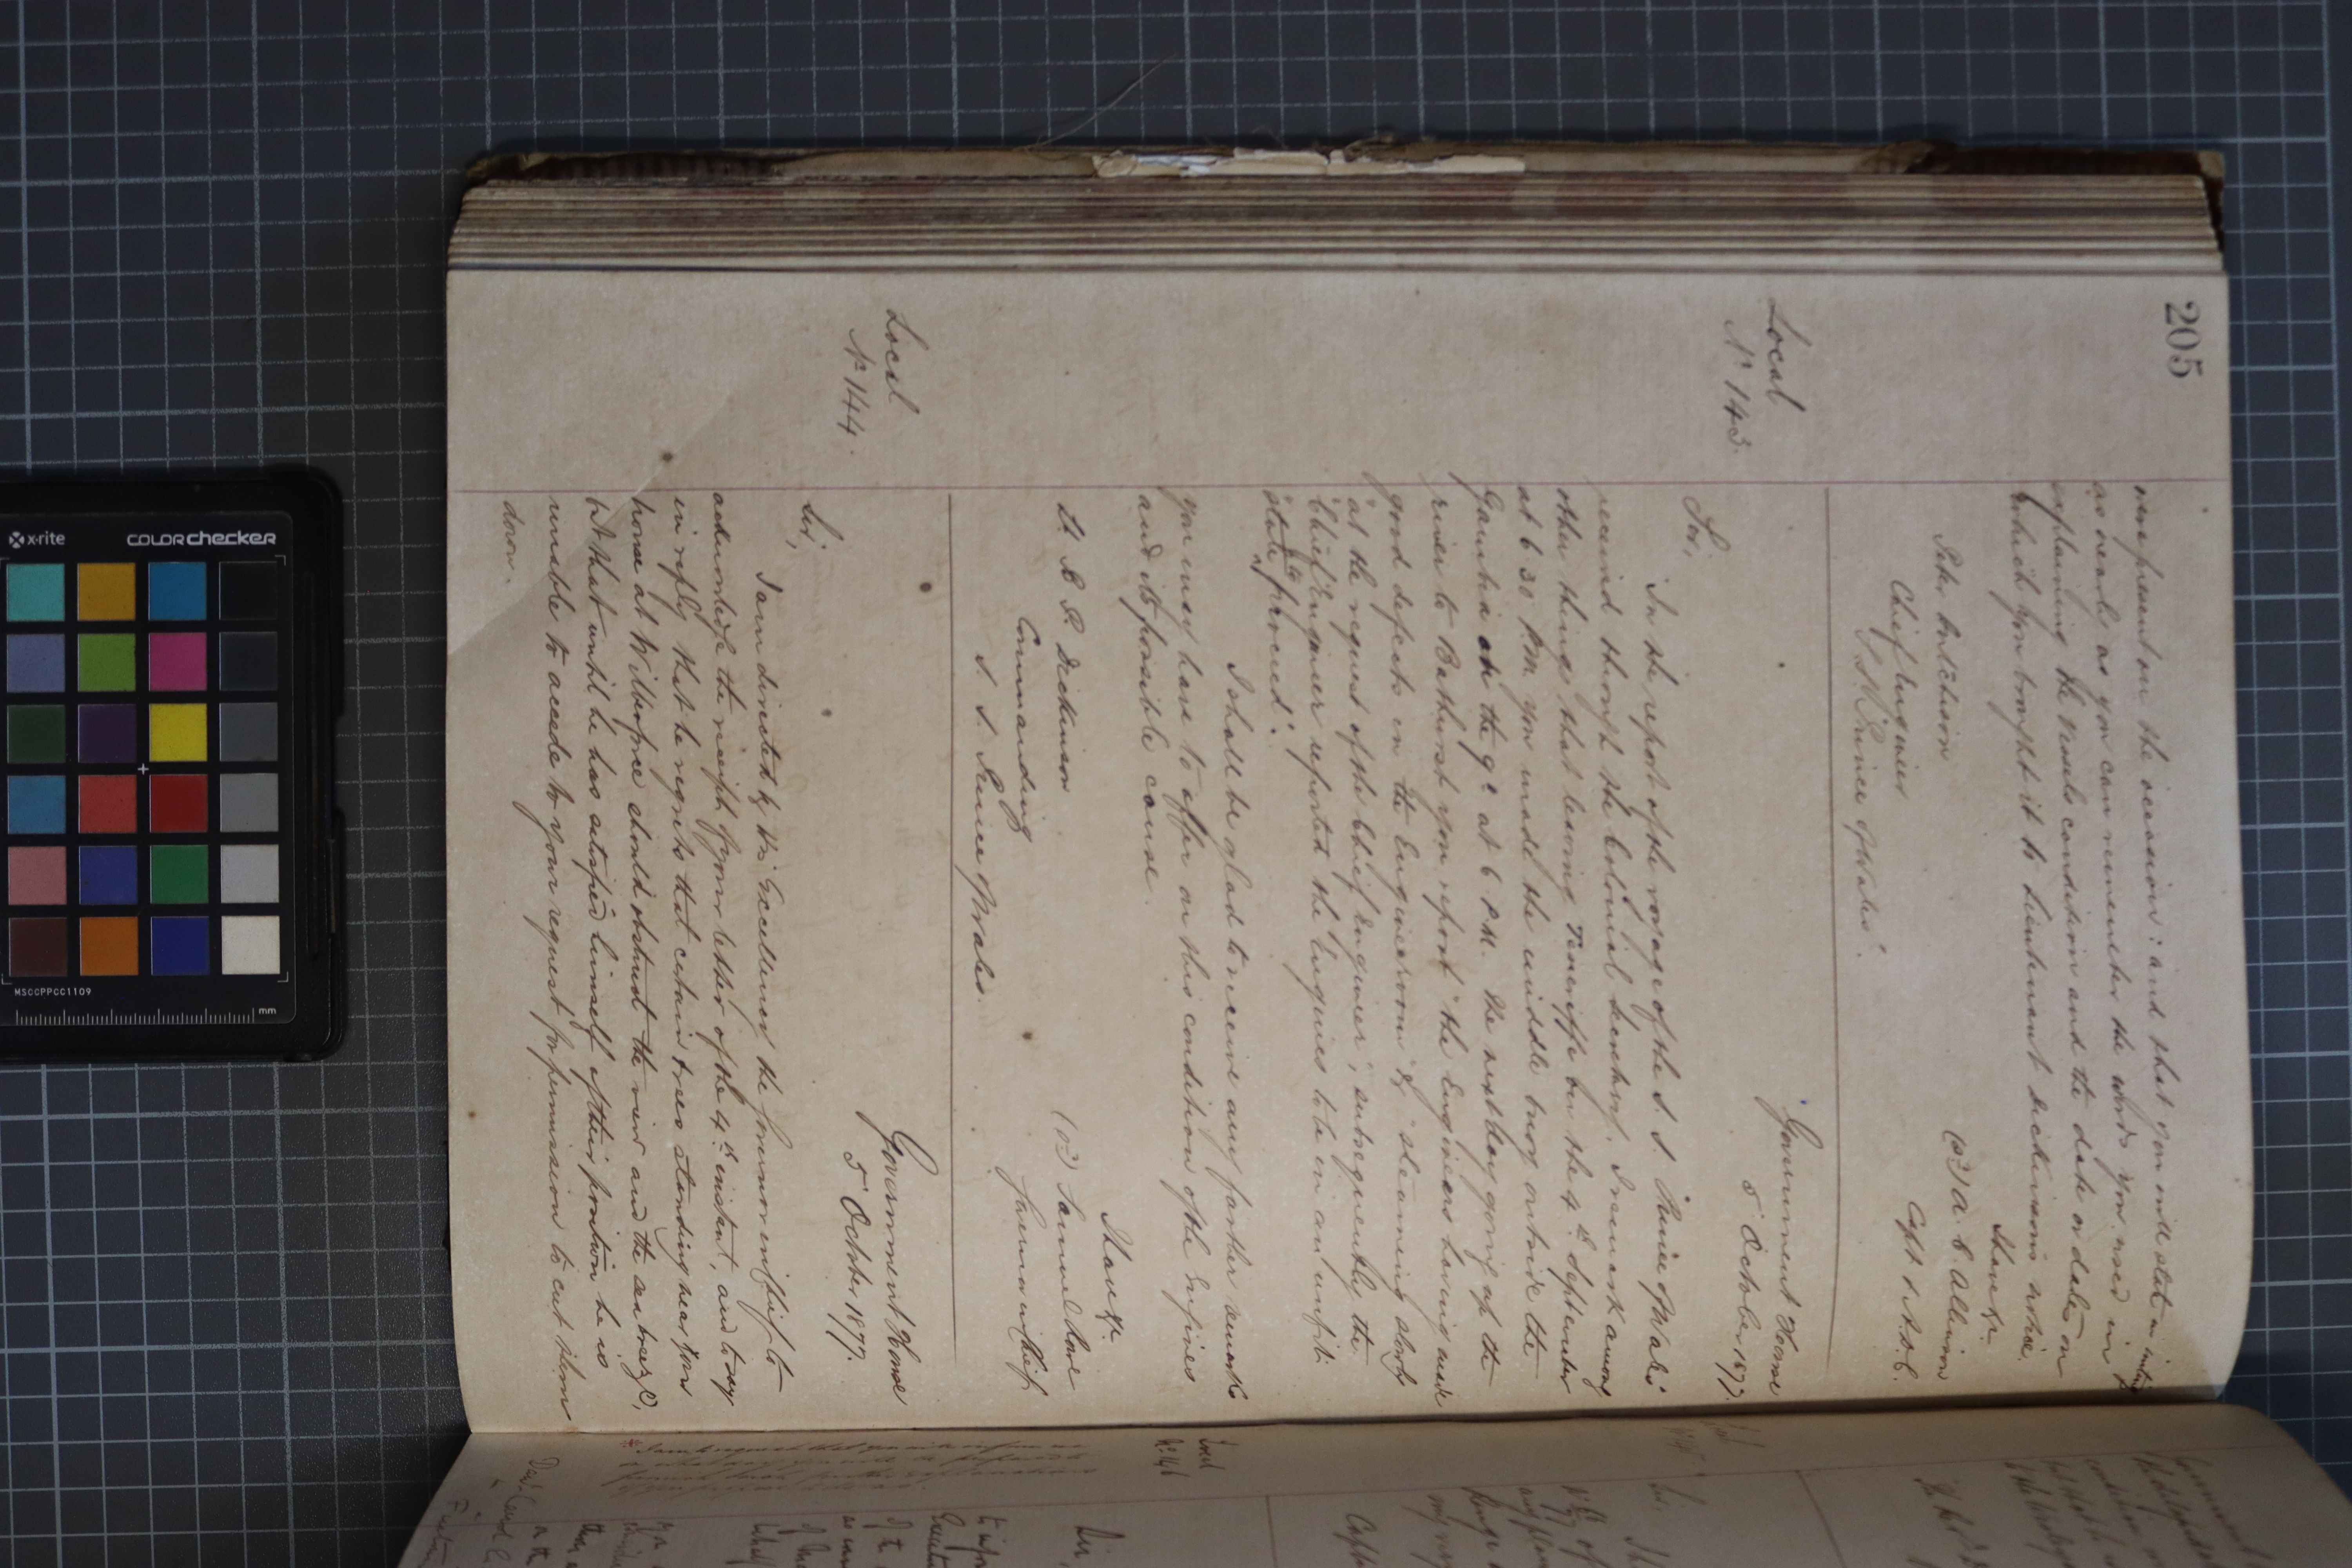 205
were present on the occasion: and that you will state in writing
as nearly as you can remember the words you used in
explaining the Vessels condition and the date or dates on
which you brought it to Lieutenant Dickinson's notice.
I have &c.
(sd) A. C. Allinson
Capt & A.D.C.
Peter Hutchison
Chief Engineer
S.S. "Prince of Wales".
Local
No 143.
Government House
5 October 1877.
Sir,
In the report of the voyage of the S. S. "Prince of Wales"
received through the Colonial Secretary, I remark among
other things that leaving Teneriffe on the 4th September
at 6 30 P.M. you made the middle buoy outside the
Gambia on the 9th at 6 P.M. The next day going up the
river to Bathurst you report "the Engineers having made
good defects in the Engineroom" & "steaming slowly
"at the request of the Chief Engineer; subsequently the
"Chief Engineer reported the Engines to be in an unfit
"state to proceed".
I shall be glad to receive any further remarks
you may have to offer on this condition of the Engines
and its possible cause.
I have &c.
(sd) Samuel Rowe
Governor in Chief
Lt B. R. Dickinson
Commanding
S. S. Prince of Wales.
Local
No 144.
Government House
5 October 1877.
Sir,
I am directed by His Excellency the Governor in Chief to
acknowledge the receipt of your letter of the 4th instant, and to say
in reply that he regrets that certain trees standing near your
house at Wilberforce should obstruct the view and the sea breeze,
but that until he has satisfied himself of their position he is
unable to accede to your request for permission to cut them
down.
Local
No 146
Sir,
x-rite
COLORchecker
MSCCPPCC1109
mm